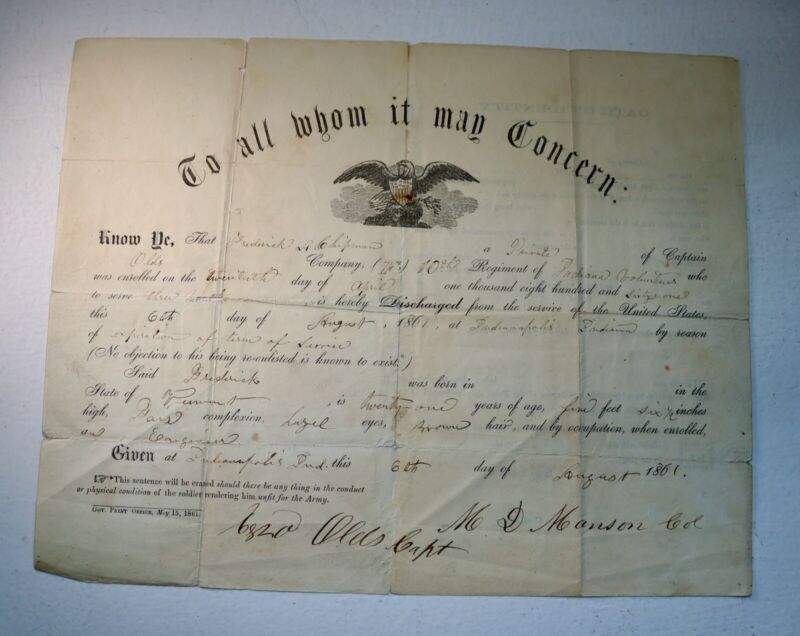 To all whom it may Concern:
Know Ye, That Frederick A Chipman a Private of Captain
Olds Company, 10th Regiment of Indiana Volunteers who
was enrolled on the twentieth day of April one thousand eight hundred and Sixty one
to serve three is hereby Discharged from the service of the United States,
this 6th day of August, 1861, at Indianapolis Indiana by reason
of expiration of term of Service
(No objection to his being re-enlisted is known to exist.*)
Said Frederick was born in in the
State of Vermont, is twenty one years of age, five feet six inches
high, Fair complexion, hazel eyes, Brown hair, and by occupation, when enrolled,
an Engineer
Given at Indianapolis Ind. this 6th day of August 1861.
*This sentence will be erased should there be any thing in the conduct
or physical condition of the soldier rendering him unfit for the Army.
Gov. Print Office, May 15, 1861.
M D Manson Col
Ezra Olds Capt